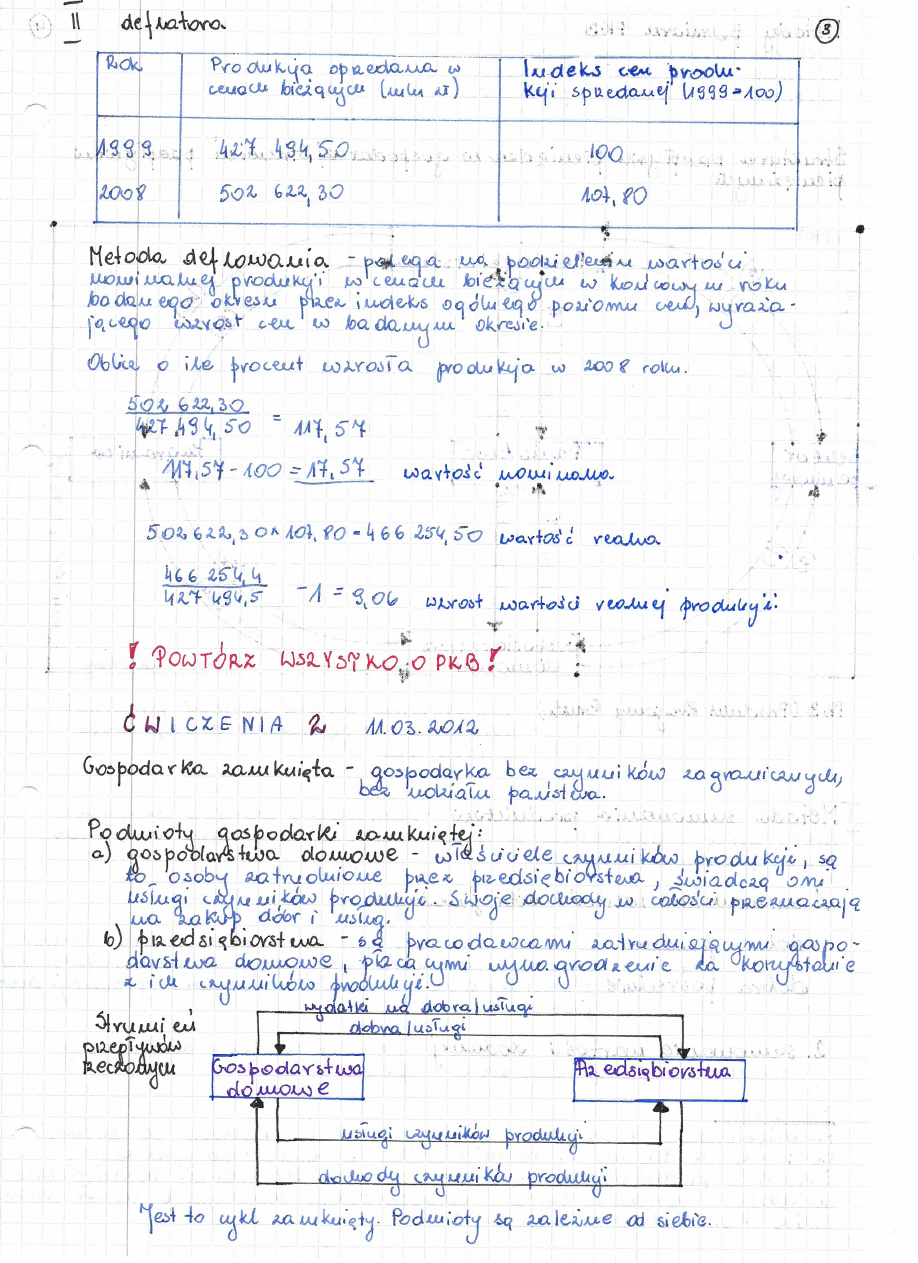 II deflatora
3
Rok
Produkcja sprzedana w cenach bieżących (mln zł)
Indeks cen produkcji sprzedanej (1999=100)
1999 427 494,50 100
2008 502 622,30 107,80
Metoda deflowania - polega na podzieleniu wartości
nominalnej produkcji w cenach bieżących w końcowym roku
badanego okresu przez indeks ogólnego poziomu cen, wyraża-
jącego wzrost cen w badanym okresie.
Oblicz o ile procent wzrosła produkcja w 2008 roku.
502 622,30
427 494,50 = 117,57
117,57 - 100 = 17,57 wartość nominalna
502 622,30 * 107,80 = 466 254,50 wartość realna
466 254,4
427 494,5 - 1 = 9,06 wzrost wartości realnej produkcji.
! POWTÓRZ WSZYSTKO O PKB!
ĆWICZENIA 2 11.03.2012
Gospodarka zamknięta - gospodarka bez czynników zagranicznych,
bez udziału państwa.
Podmioty gospodarki zamkniętej:
a) gospodarstwa domowe - właściciele czynników produkcji, są
to osoby zatrudnione przez przedsiębiorstwa, świadczą oni
usługi czynników produkcji. Swoje dochody w całości przeznaczają
na zakup dóbr i usług.
b) przedsiębiorstwa - są pracodawcami zatrudniającymi gospo-
darstwa domowe, płacącymi wynagrodzenie za korzystanie
z ich czynników produkcji.
Strumień
przepływów
rzeczowych
wydatki na dobra/usługi
dobra/usługi
Gospodarstwa
domowe
Przedsiębiorstwa
usługi czynników produkcji
dochody czynników produkcji
Jest to cykl zamknięty. Podmioty są zależne od siebie.